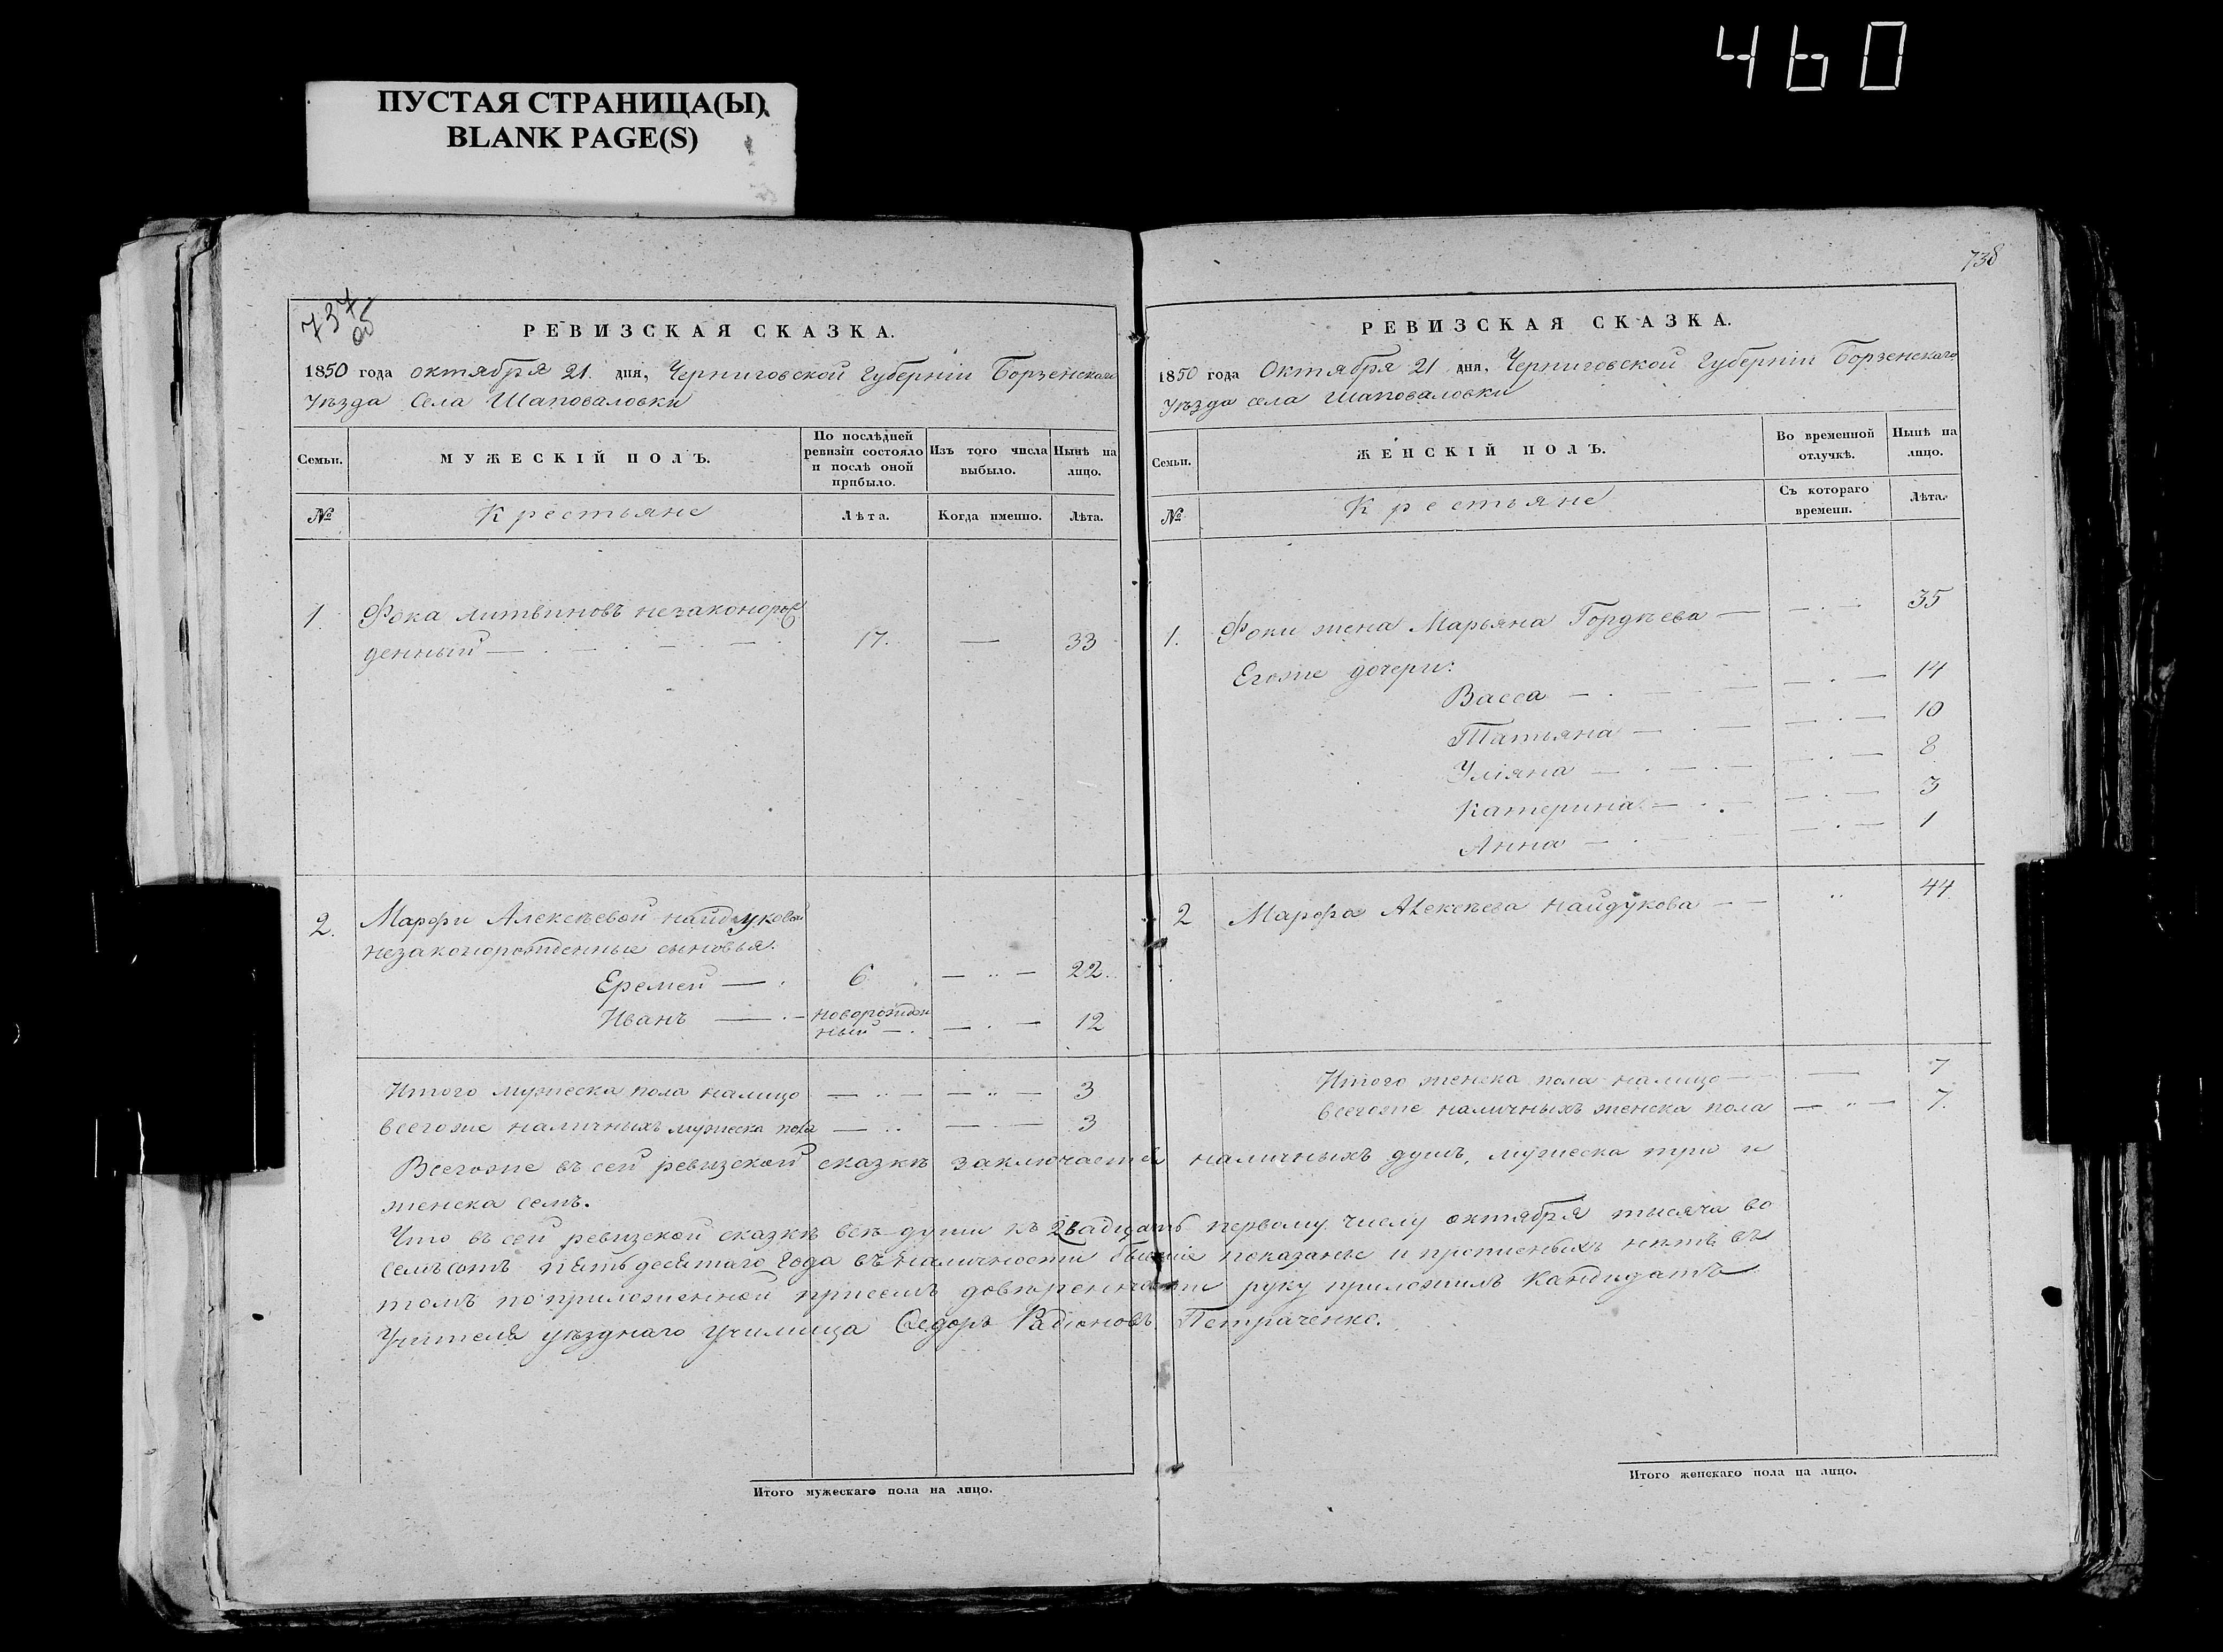 460
ПУСТАЯ СТРАНИЦА(Ы)
BLANK PAGE(S)
737
об
РЕВИЗСКАЯ СКАЗКА.
1850 года октября 21. дня, Черниговской Губерніи Борзенскаго
Уѣзда Села Шаповаловки
Семьи.
МУЖЕСКІЙ ПОЛЪ.
По послѣдней ревизіи состояло и послѣ оной прибыло.
Изъ того числа выбыло.
Нынѣ на лицо.
№
Крестьяне
Лѣта.
Когда именно.
Лѣта.
1. Фока Литвиновъ незаконорож
денный — 17. — 33
2. Марфи Алексѣевой Найдуковой
незаконорожденные сыновья:
Еремей — 6 — 22.
Иванъ — новорожден
ный — 12
Итого мужеска пола налицо — 3
Всегоже наличныхъ мужеска пола — 3
738
РЕВИЗСКАЯ СКАЗКА.
1850 года Октября 21 дня, Черниговской Губерніи Борзенскаго
Уѣзда села Шаповаловки
Семьи.
ЖЕНСКІЙ ПОЛЪ.
Во временной отлучкѣ.
Нынѣ на лицо.
№
Крестьяне
Съ котораго времени.
Лѣта.
1. Фоки жена Марьяна Гордѣева — 35
Егоже дочери:
Васса — 14
Татьяна — 10
Уліяна — 8
Катерина — 3
Анна — 1
2 Марфа Алексѣева Найдукова — 44
Итого женска пола налицо — 7
Всегоже наличныхъ женска пола — 7.
Всегоже въ сей ревизской сказкѣ заключается наличныхъ душъ, мужеска три и
женска семь.
Что въ сей ревизской сказкѣ всѣ души къ двадцать первому числу октября тысяча во
семъсотъ пятьдесятаго года въ наличности бывшіе показаны и прописныхъ нѣтъ въ
томъ по приложенной присемъ довѣренности руку приложилъ Кандидатъ
Учителя уѣзднаго училища Федоръ Радіоновъ Петраченко.
Итого мужескаго пола на лицо.
Итого женскаго пола на лицо.